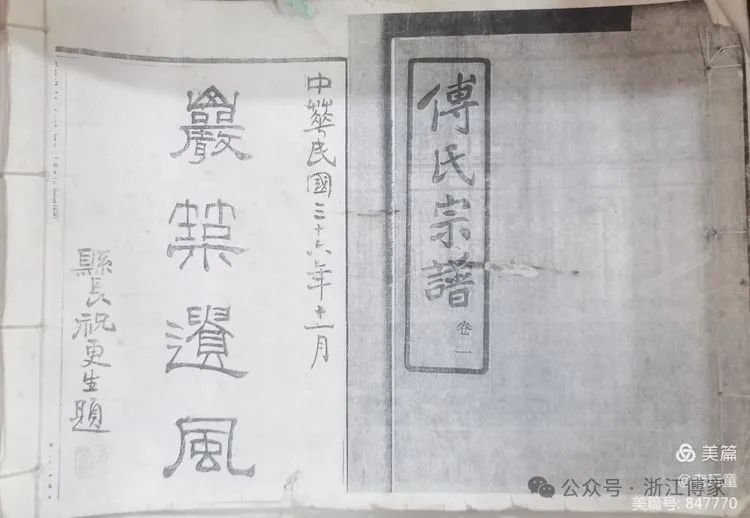 傅氏宗譜
卷一
中華民國三十六年十一月
巖築遺風
縣長祝更生題
美篇
@老玩童
公众号·浙江傅家
美篇号: 847770